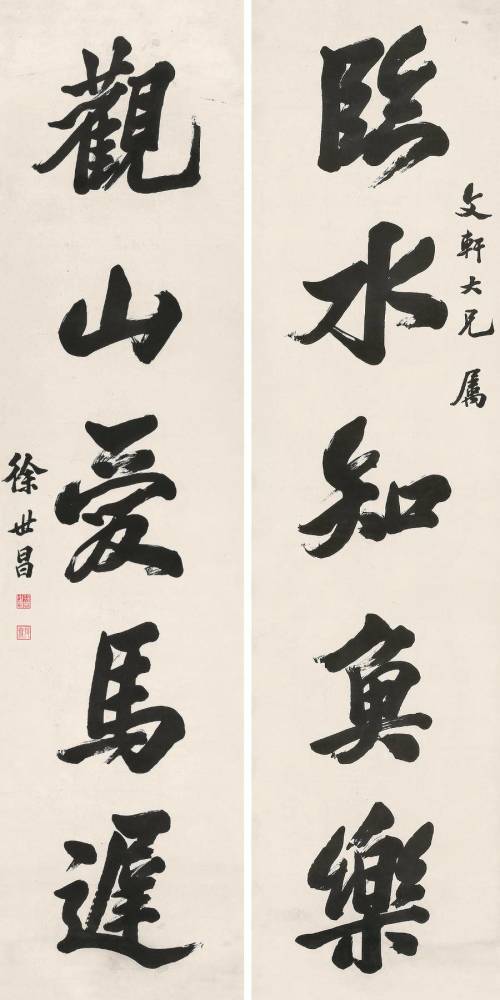 文軒大兄屬
臨水知魚樂
觀山愛馬遲
徐世昌